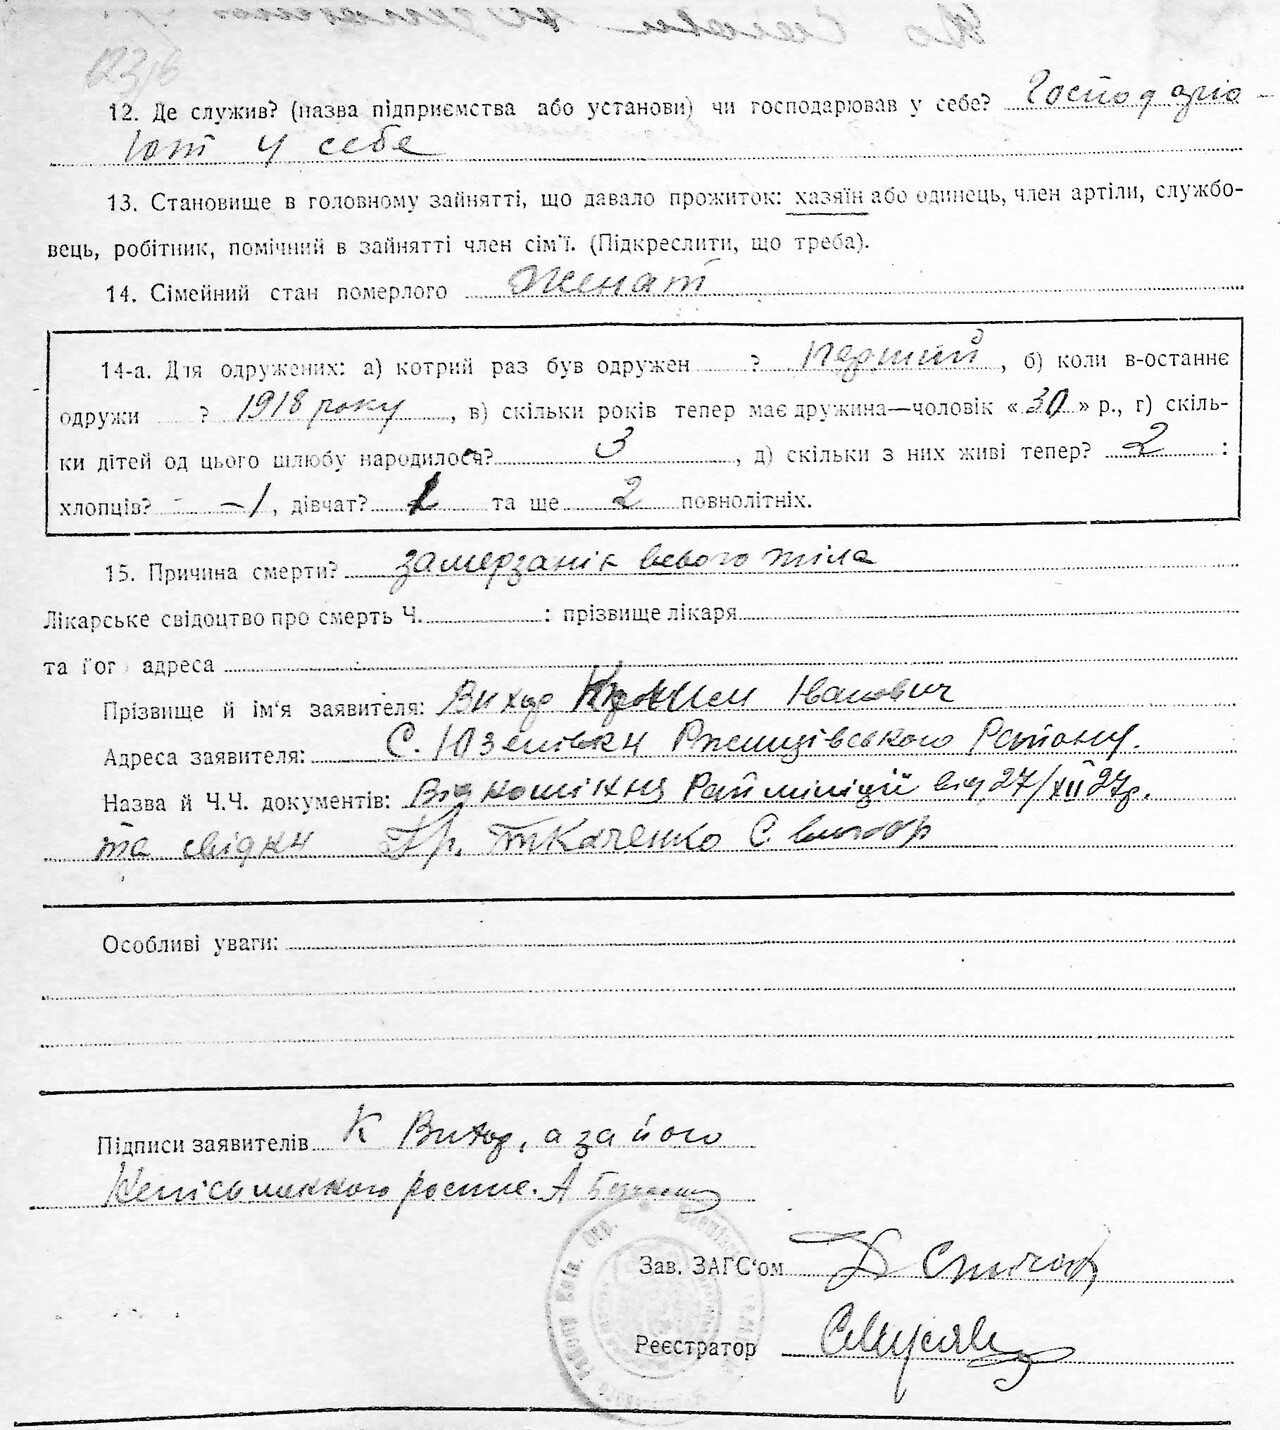 12. Де служив? (назва підприємства або установи) чи господарював у себе? Господарю-
ют у себе
13. Становище в головному зайнятті, що давало прожиток: хазяїн або одинець, член артіли, службо-
вець, робітник, помічний в зайнятті член сім'ї. (Підкреслити, що треба).
14. Сімейний стан померлого Женат
14-а. Для одружених: а) котрий раз був одружен ? Перший, б) коли в-останнє
одружи ? 1918 року, в) скільки років тепер має дружина—чоловік «30» р., г) скіль-
ки дітей од цього шлюбу народилося? 3, д) скільки з них живі тепер? 2 :
хлопців? - 1, дівчат? 1 та ще 2 повнолітніх.
15. Причина смерти? замерзаник всього тіла
Лікарське свідоцтво про смерть Ч. : прізвище лікаря
та йог адреса
Прізвище й ім'я заявителя: Вихор Іванович
Адреса заявителя: С. Юзепівки Ржищівського Району.
Назва й Ч.Ч. документів: Відношіння Райміліції від 27/XII 27р.
та свідки Гр. Ткаченко С.
Особливі уваги:
Підписи заявителів К Вихор, а за його
Неписьменного роспис. А
Зав. ЗАГС'ом
Реєстратор